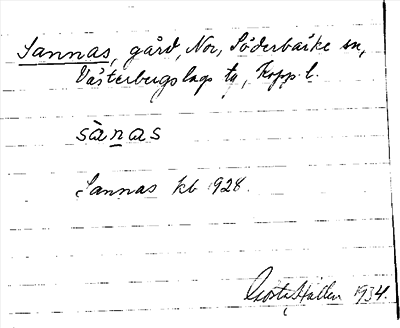 Sannas, gård, Nor, Söderbärke sn,
Västerbergslags tg, Kopp. l.
sànas
Sannas kb 1928.
Gösta Hallen 1934.